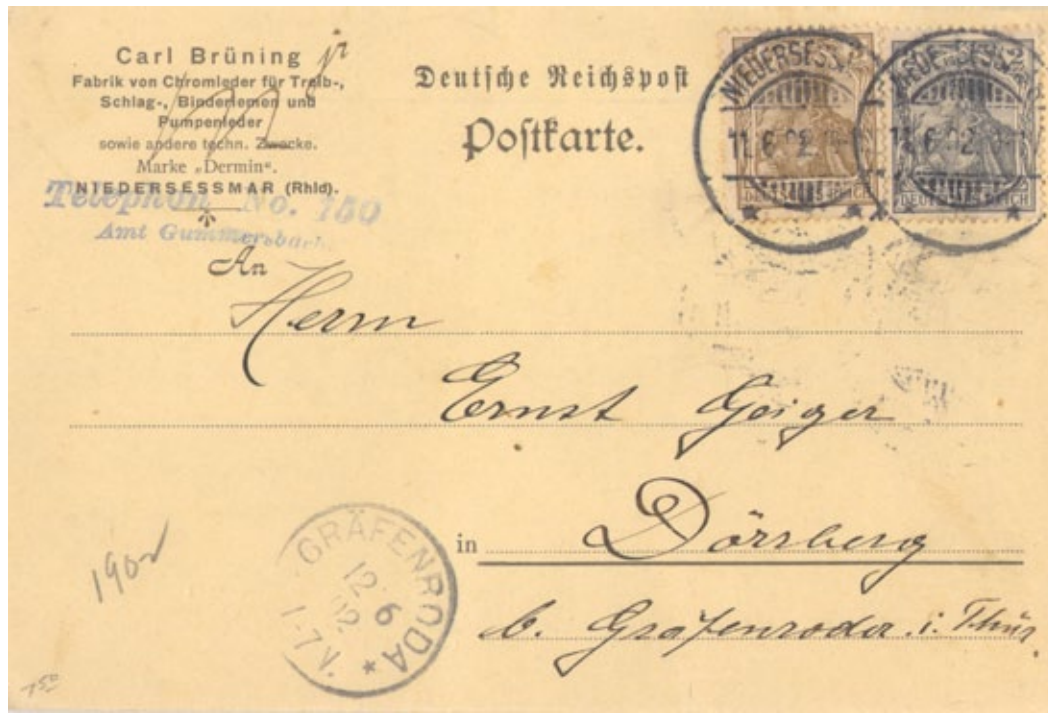 Carl Brüning jr
Fabrik von Chromleder für Treib-,
Schlag-, Binderiemen und
Pumpenleder
sowie andere techn. Zwecke.
Marke „Dermin“.
NIEDERSESSMAR (Rhld).
Telephon No. 150
Amt Gummersbach
Deutsche Reichspost
Postkarte.
NIEDERSESSM
11.6.02
DEUTSCHES REICH
NIEDERSESSM
11.6.02
DEUTSCHES REICH
An
Herrn
Ernst Geiger
in Dörrberg
b. Gräfenroda i. Thür.
1902
GRÄFENRODA
12.6
02
1-7V.
150